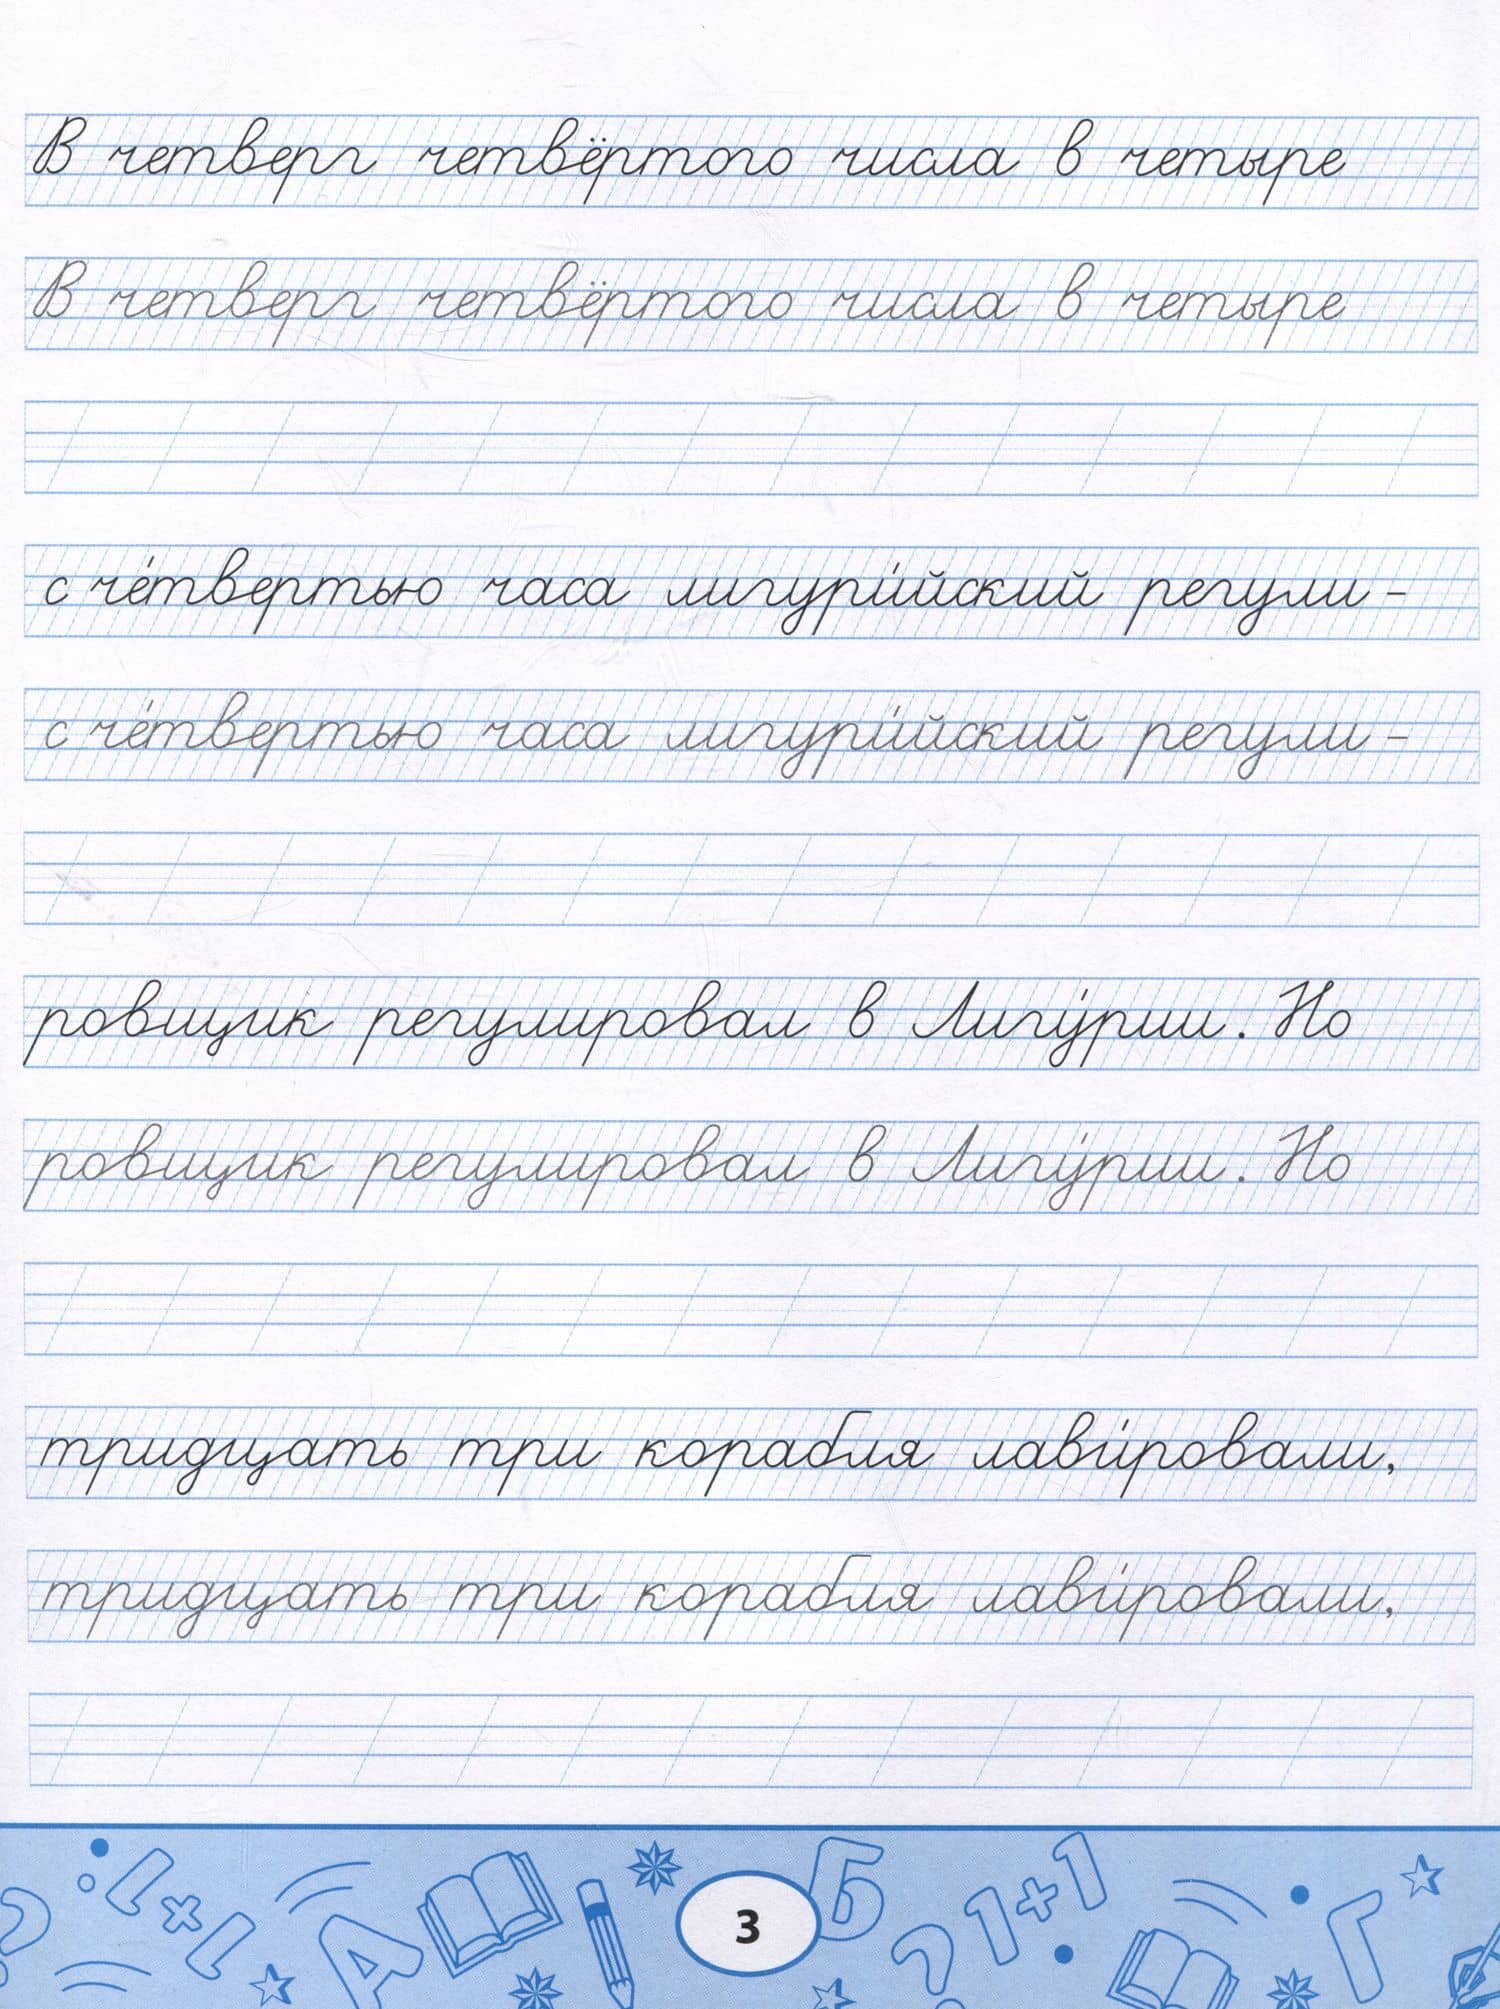 В четверг четвёртого числа в четыре
В четверг четвёртого числа в четыре
с че́твертью часа лигури́йский регули-
с че́твертью часа лигури́йский регули-
ровщик регулировал в Лигу́рии. Но
ровщик регулировал в Лигу́рии. Но
тридцать три корабля лави́ровали,
тридцать три корабля лави́ровали,
1+1
А
3
Б
?
1+1
Г